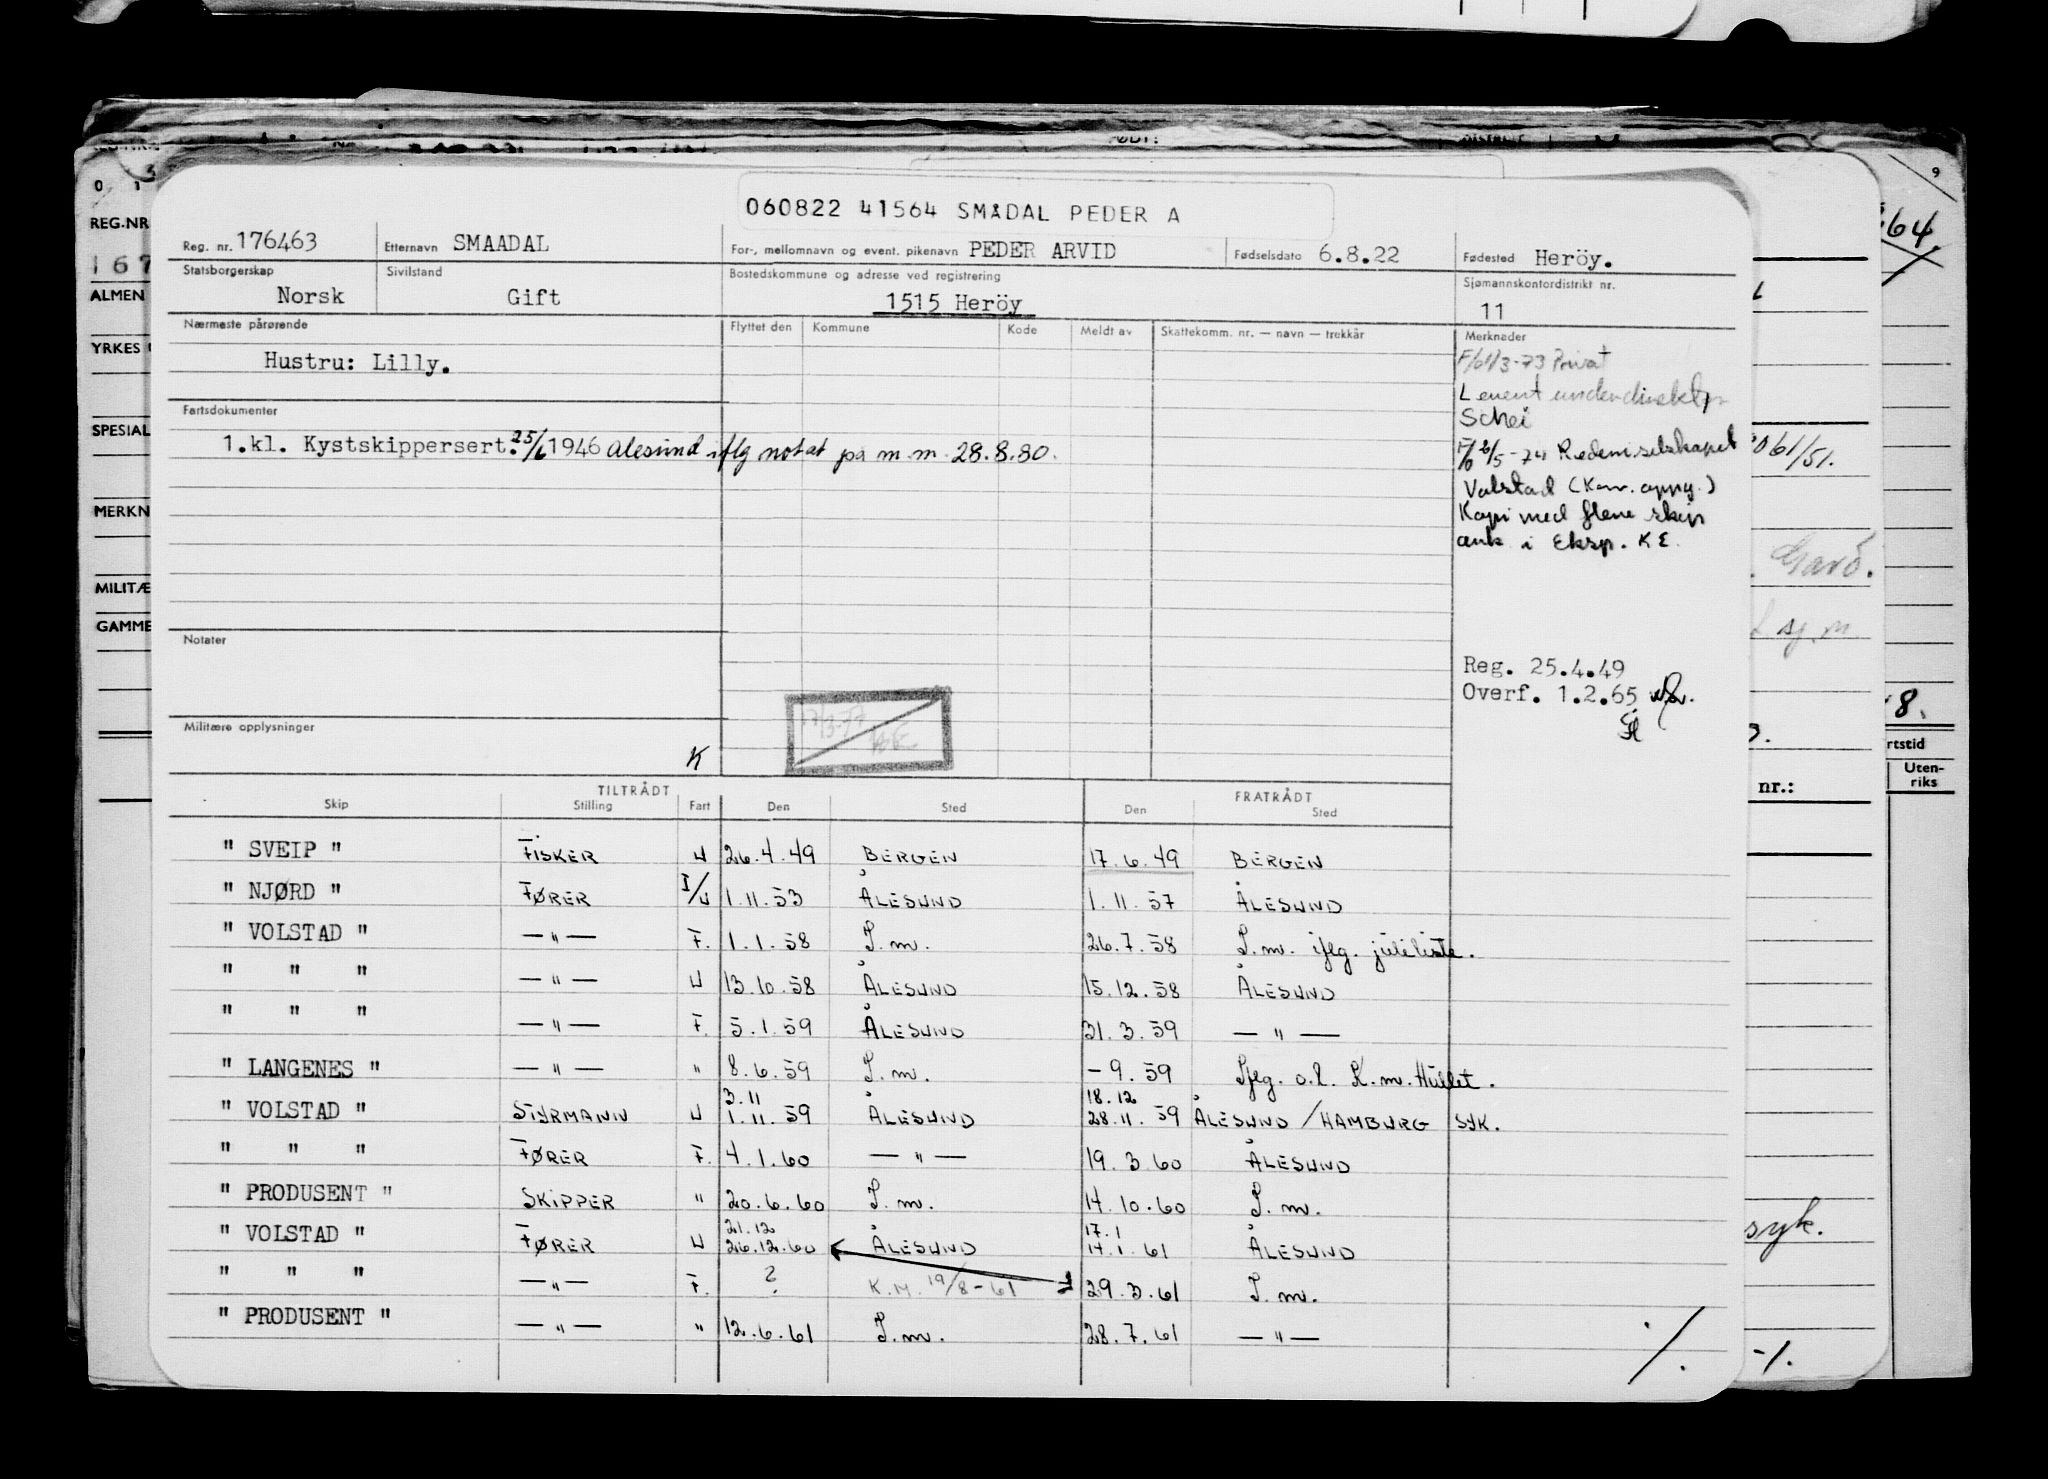 060822 41564 SMÅDAL PEDER A
Reg. nr. 176463 Etternavn SMAADAL For-, mellomnavn og event. pikenavn PEDER ARVID Fødselsdato 6.8.22 Fødested Heröy.
Statsborgerskap Norsk Sivilstand Gift Bostedskommune og adresse ved registrering 1515 Heröy Sjømannskontordistrikt nr. 11
Nærmeste pårørende Flyttet den Kommune Kode Meldt av Skattekomm. nr. — navn — trekkår Merknader
Hustru: Lilly.
F/61/3-73 Privat
Levert underdirektør
Schei
Fartsdokumenter
1.kl. Kystskippersert. 25/6 1946 Ålesund iflg notat på m.m. 28.8.80.
6/5-74 Rederiselskapet
Volstad (Kov. oppg.)
Kopi med flere skip
ark i Eksp. KE.
Notater
Reg. 25.4.49
Overf. 1.2.65
Militære opplysninger
K
TILTRÅDT FRATRÅDT
Skip Stilling Fart Den Sted Den Sted
" SVEIP " FISKER U 26.4.49 BERGEN 17.6.49 BERGEN
" NJØRD " FØRER I/U 1.11.53 ÅLESUND 1.11.57 ÅLESUND
" VOLSTAD " — " — F. 1.1.58 I.m. 26.7.58 I.m. iflg. juleliste.
" " " — " — U 13.10.58 ÅLESUND 15.12.58 ÅLESUND
" " " — " — F. 5.1.59 ÅLESUND 31.3.59 — " —
" LANGENES " — " — " 8.6.59 I.m. - 9.59 Iflg. o.l. K.m. Hullet.
3.11 18.12
" VOLSTAD " STYRMANN U 1.11.59 ÅLESUND 28.11.59 ÅLESUND / HAMBURG SYK.
" " " FØRER F. 4.1.60 — " — 19.3.60 ÅLESUND
" PRODUSENT " SKIPPER " 20.6.60 I.m. 14.10.60 I.m.
21.12 17.1
" VOLSTAD " FØRER U 26.12.60 ÅLESUND 14.1.61 ÅLESUND
" " " — " — F. ? K.M. 19/8-61 29.3.61 I.m.
" PRODUSENT " — " — " 12.6.61 I.m. 28.7.61 — " —
./.
0 1
REG.NR
167
ALMEN
YRKES
SPESIAL
MERKN
MILITÆ
GAMME
9
64.
061/51.
Garð.
sj.m.
8.
rtstid
Uten-
riks
nr.:
syk.
-/.